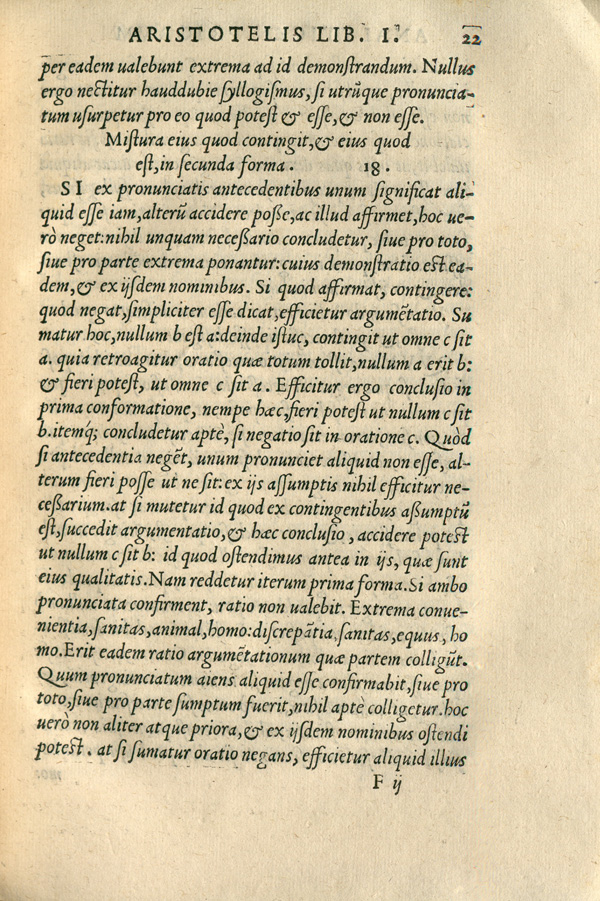 ARISTOTELIS LIB. I. 22
per eadem ualebunt extrema ad id demonstrandum. Nullus
ergo nectitur hauddubie syllogismus, si utrũque pronuncia-
tum usurpetur pro eo quod potest & esse, & non esse.
Mistura eius quod contingit, & eius quod
est, in secunda forma. 18.
SI ex pronunciatis antecedentibus unum significat ali-
quid esse iam, alterũ accidere posse, ac illud affirmet, hoc ue-
rò neget: nihil unquam necessario concludetur, siue pro toto,
siue pro parte extrema ponantur: cuius demonstratio est ea-
dem, & ex ijsdem nominibus. Si quod affirmat, contingere:
quod negat, simpliciter esse dicat, efficietur argumẽtatio. Su
matur hoc, nullum b est a: deinde istuc, contingit ut omne c sit
a. quia retroagitur oratio quæ totum tollit, nullum a erit b:
& fieri potest, ut omne c sit a. Efficitur ergo conclusio in
prima conformatione, nempe hæc, fieri potest ut nullum c sit
b. itemq́; concludetur aptè, si negatio sit in oratione c. Quòd
si antecedentia negẽt, unum pronunciet aliquid non esse, al-
terum fieri posse ut ne sit: ex ijs assumptis nihil efficitur ne-
cessarium. at si mutetur id quod ex contingentibus assumptũ
est, succedit argumentatio, & hæc conclusio, accidere potest
ut nullum c sit b: id quod ostendimus antea in ijs, quæ sunt
eius qualitatis. Nam reddetur iterum prima forma. Si ambo
pronunciata confirment, ratio non ualebit. Extrema conue-
nientia, sanitas, animal, homo: discrepãtia, sanitas, equus, ho
mo. Erit eadem ratio argumẽtationum quæ partem colligũt.
Quum pronunciatum aiens aliquid esse confirmabit, siue pro
toto, siue pro parte sumptum fuerit, nihil aptè colligetur. hoc
uerò non aliter atque priora, & ex ijsdem nominibus ostendi
potest. at si sumatur oratio negans, efficietur aliquid illius
F ij